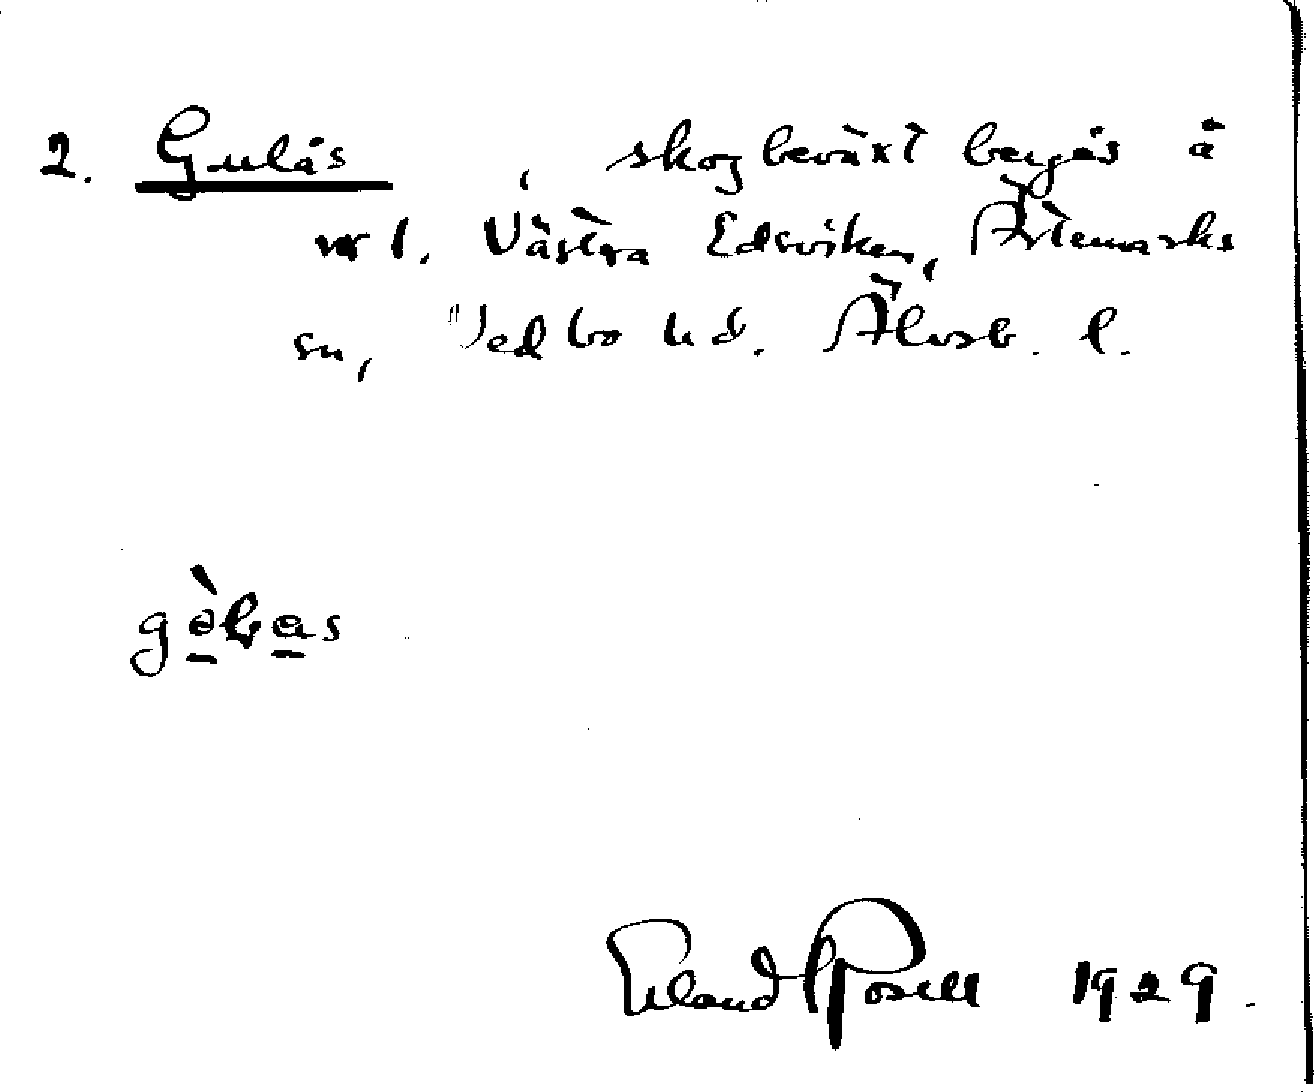 2. Gulås , skogbeväxt bergås å
vr l. Västra Edsviken, Ärtemarks
sn, Vedbo hd. Älvsb. l.
Erland Rosell 1929.